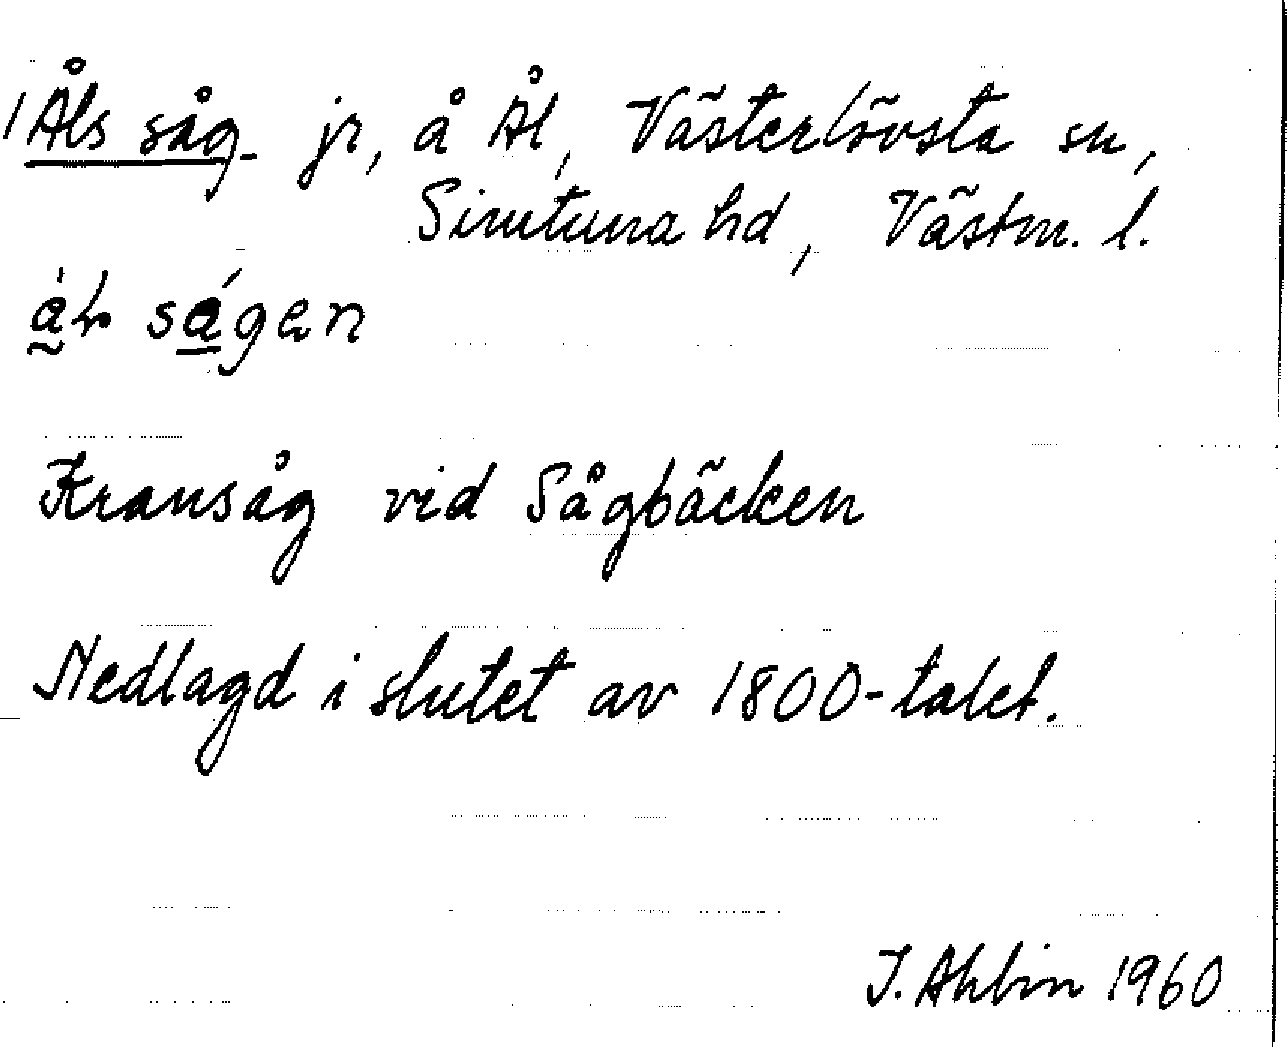 Åls såg jr, å Ål, Västerlövsta sn,
Simtuna hd, Västm. l.
sågen
Kransåg vid Sågbäcken
Nedlagd i slutet av 1800-talet.
I. Ahlin 1960